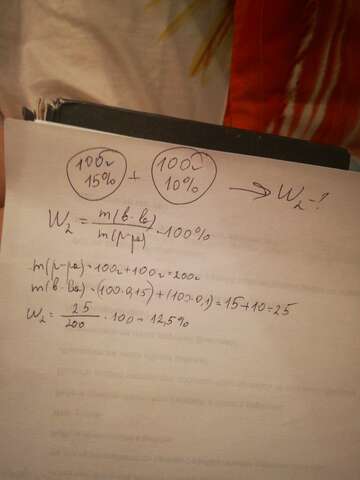 100г 15% + 100г 10% → W₂ - ?
W₂ = m(в-ва) / m(р-ра) · 100%
m(р-ра) = 100г + 100г = 200г
m(в-ва) = (100·0,15) + (100·0,1) = 15 + 10 = 25
W₂ = 25 / 200 · 100 = 12,5%